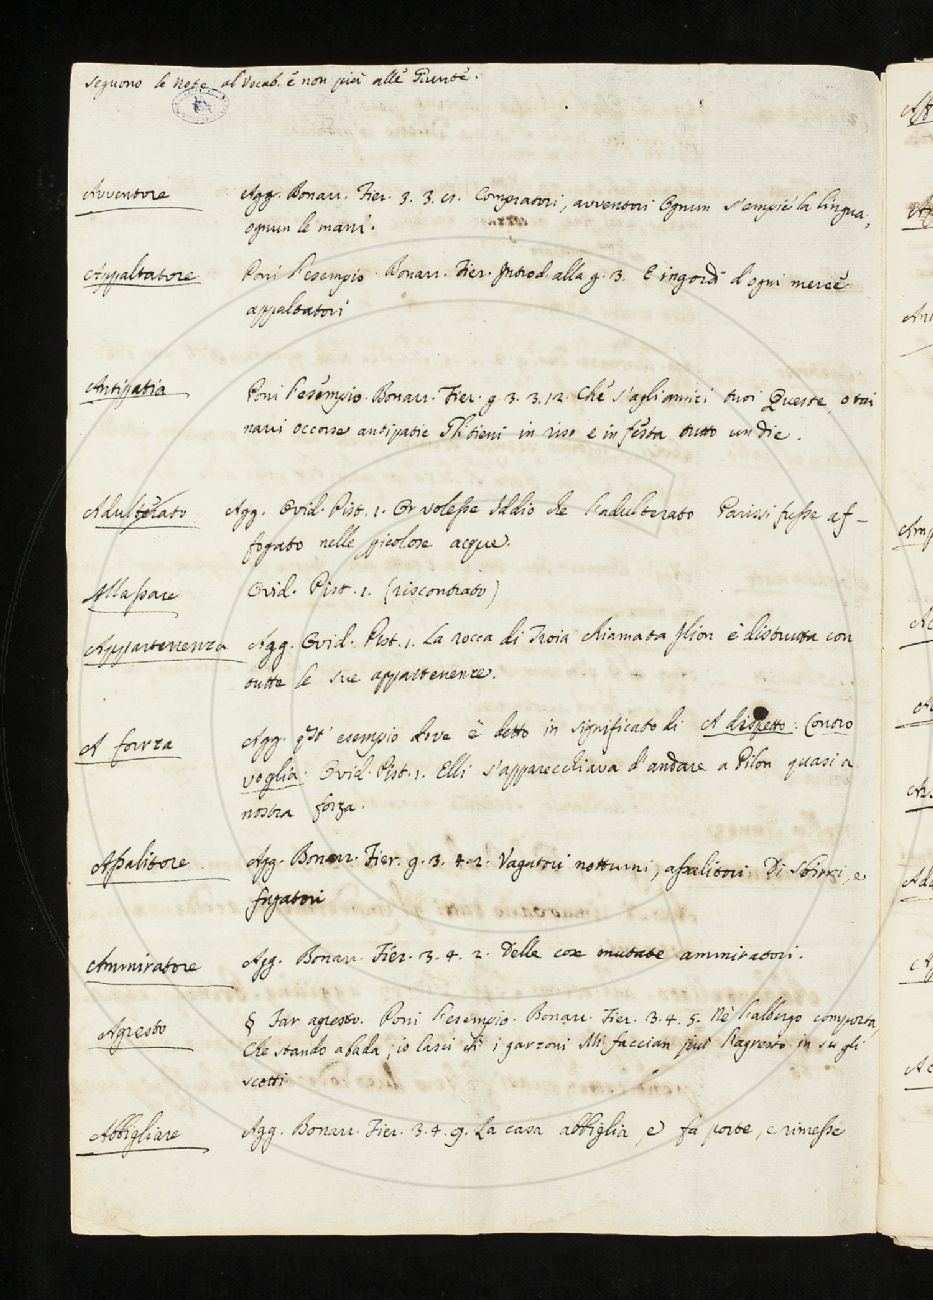 seguono le Note al Vocab. e non più alle Giunte.
Avventore Agg. Bonarr. Fier. 3. 3. Compratori, avventori Ognun s'empiè la lingua,
ognun le mani.
Appaltatore Poni l'esempio. Bonarr. Fier. Introd. alla g. 3. E ingordi d'ogni merce
appaltatori
Antipatia Poni l'esempio. Bonarr. Fier. g. 3. 3. 12. Che s'agli amici tuoi Queste, o tai
navi occorse antipatie Gli tieni in riso e in festa tutto un die.
Adulterato Agg. Ovid. Pist. 1. Or volesse Iddio che l'adulterato Parissi fusse af-
fogato nelle picolose acque.
Allassare Ovid. Pist. 1. (riscontrato)
Appartenenza Agg. Ovid. Pist. 1. La rocca di Troia chiamata Ilion è distrutta con
tutte le sue appartenenze.
A forza Agg. qsti esempio dove è detto in significato di A dispetto: Contro
voglia. Ovid. Pist. 1. Elli s'apparecchiava d'andare a Pilon quasi a
nostra forza.
Assalitore Agg. Bonarr. Fier. g. 3. 4. 2. Vagatori notturni, assalitori Di sbirri, e
fugatori
Ammiratore Agg. Bonarr. Fier. 3. 4. 2. Delle cose mutate ammiratori.
Agresto § Far agresto. Poni l'esempio. Bonarr. Fier. 3. 4. 5. Nè l'albergo comporta,
Che stando a bada, io lasci ch' i garzoni Mi faccian più l'agresto in su gli
scotti
Abbigliare Agg. Bonarr. Fier. 3. 4. 9. La casa abbiglia, e fa porte, e rimesse